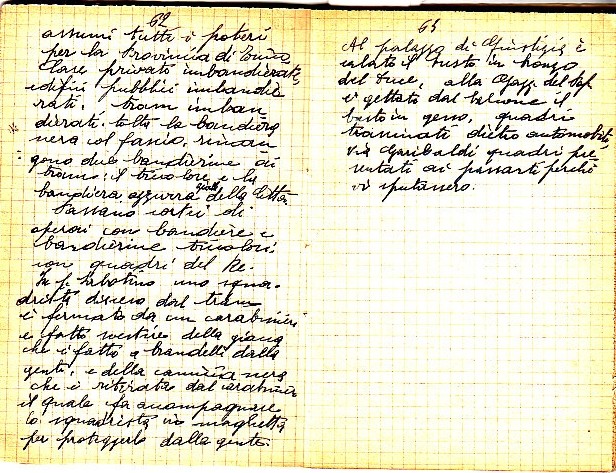 62
assumi tutti i poteri
per la Provincia di Torino
Case private imbandierate
edifici pubblici imbandie
rati. tram imban
dierati. tolta la bandiera
nera col fascio, riman
gono due bandierine ai
trams: il tricolore e la
bandiera azzurra gialla della Città
Passano cortei di
operai con bandiere e
bandierine tricolori
con quadri del Re.
In p. Sabotino uno squa.
drista disceso dal tram
è fermato da un carabiniere
è fatto svestire della giacca
che è fatta a brandelli dalla
gente, e della camicia nera
che è ritirata dal carabiniere
il quale fa accompagnare
lo squadrista in maglietta
per proteggerlo dalla gente.
63
Al palazzo di Giustizia è
calato il busto in bronzo
del Duce, alla Gazz. del Pop.
è gettato dal balcone il
busto in gesso, quadri
trascinati dietro automobili,
via Garibaldi quadri pre
sentati ai passanti perché
vi sputassero.